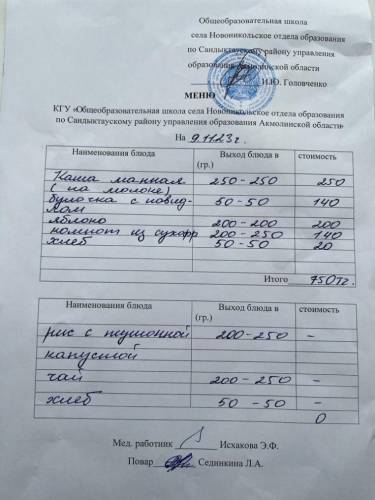 Общеобразовательная школа
села Новоникольское отдела образования
по Сандыктаускому району управления
образования Акмолинской области
И.Ю. Головченко
МЕНЮ
КГУ «Общеобразовательная школа села Новоникольское отдела образования
по Сандыктаускому району управления образования Акмолинской области»
На 9.11.23г.
Наименования блюда Выход блюда в (гр.) стоимость
Каша манная 250-250 250
(на молоке)
булочка с повид- 50-50 140
лом
яблоко 200-200 200
компот из сухофр 200-250 140
хлеб 50-50 20
Итого 750тг.
Наименования блюда Выход блюда в (гр.) стоимость
рис с тушонной 200-250 -
капустой
чай 200-250 -
хлеб 50-50 -
0
Мед. работник Исхакова Э.Ф.
Повар Сединкина Л.А.